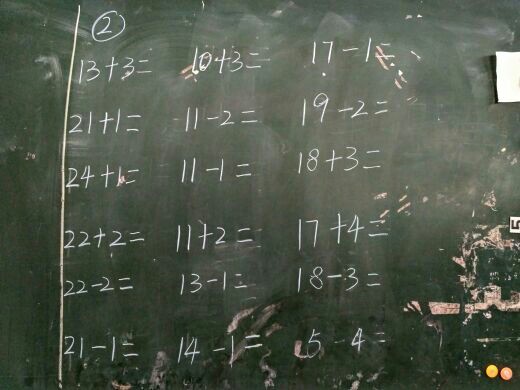 ②
13+3= 10+3= 17-1=
21+1= 11-2= 19-2=
24+1= 11-1= 18+3=
22+2= 11+2= 17+4=
22-2= 13-1= 18-3=
21-1= 14-1= 15-4=